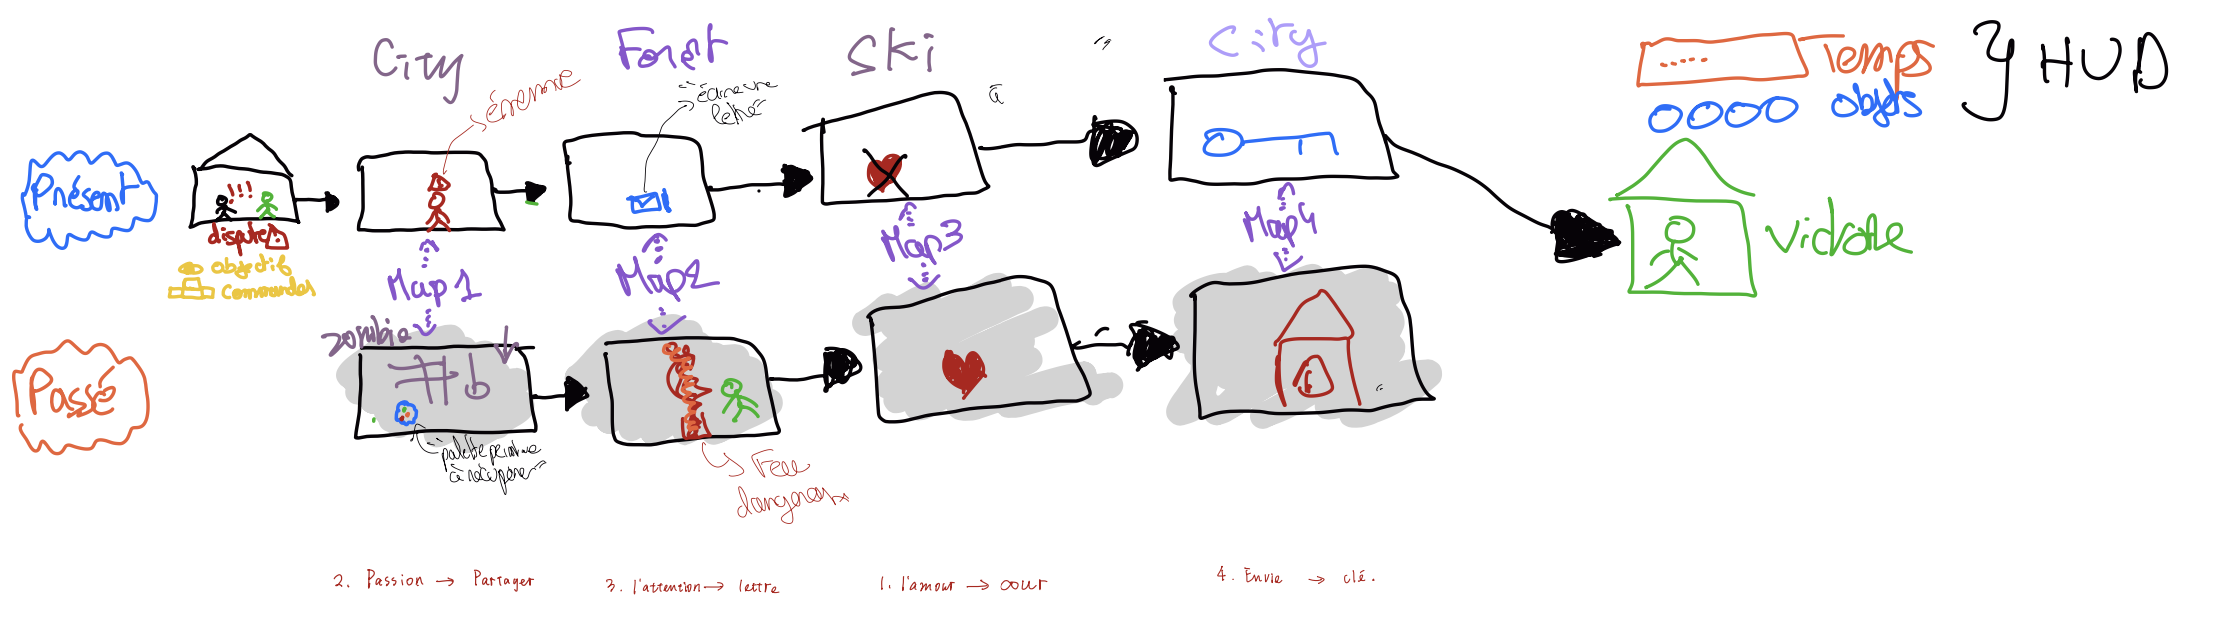 City
Foret
Ski
City
Temps
objets
HUD
Présent
!!!
dispute
objectif
commandes
"écrire une
lettre"
Map 1
Map2
Map3
Map4
Victoire
Passé
zombie
"palette peinture
à récupérer"
Feu
dangereux
2. Passion → Partager
3. l'attention → lettre
1. l'amour → cour
4. Envie → clé.